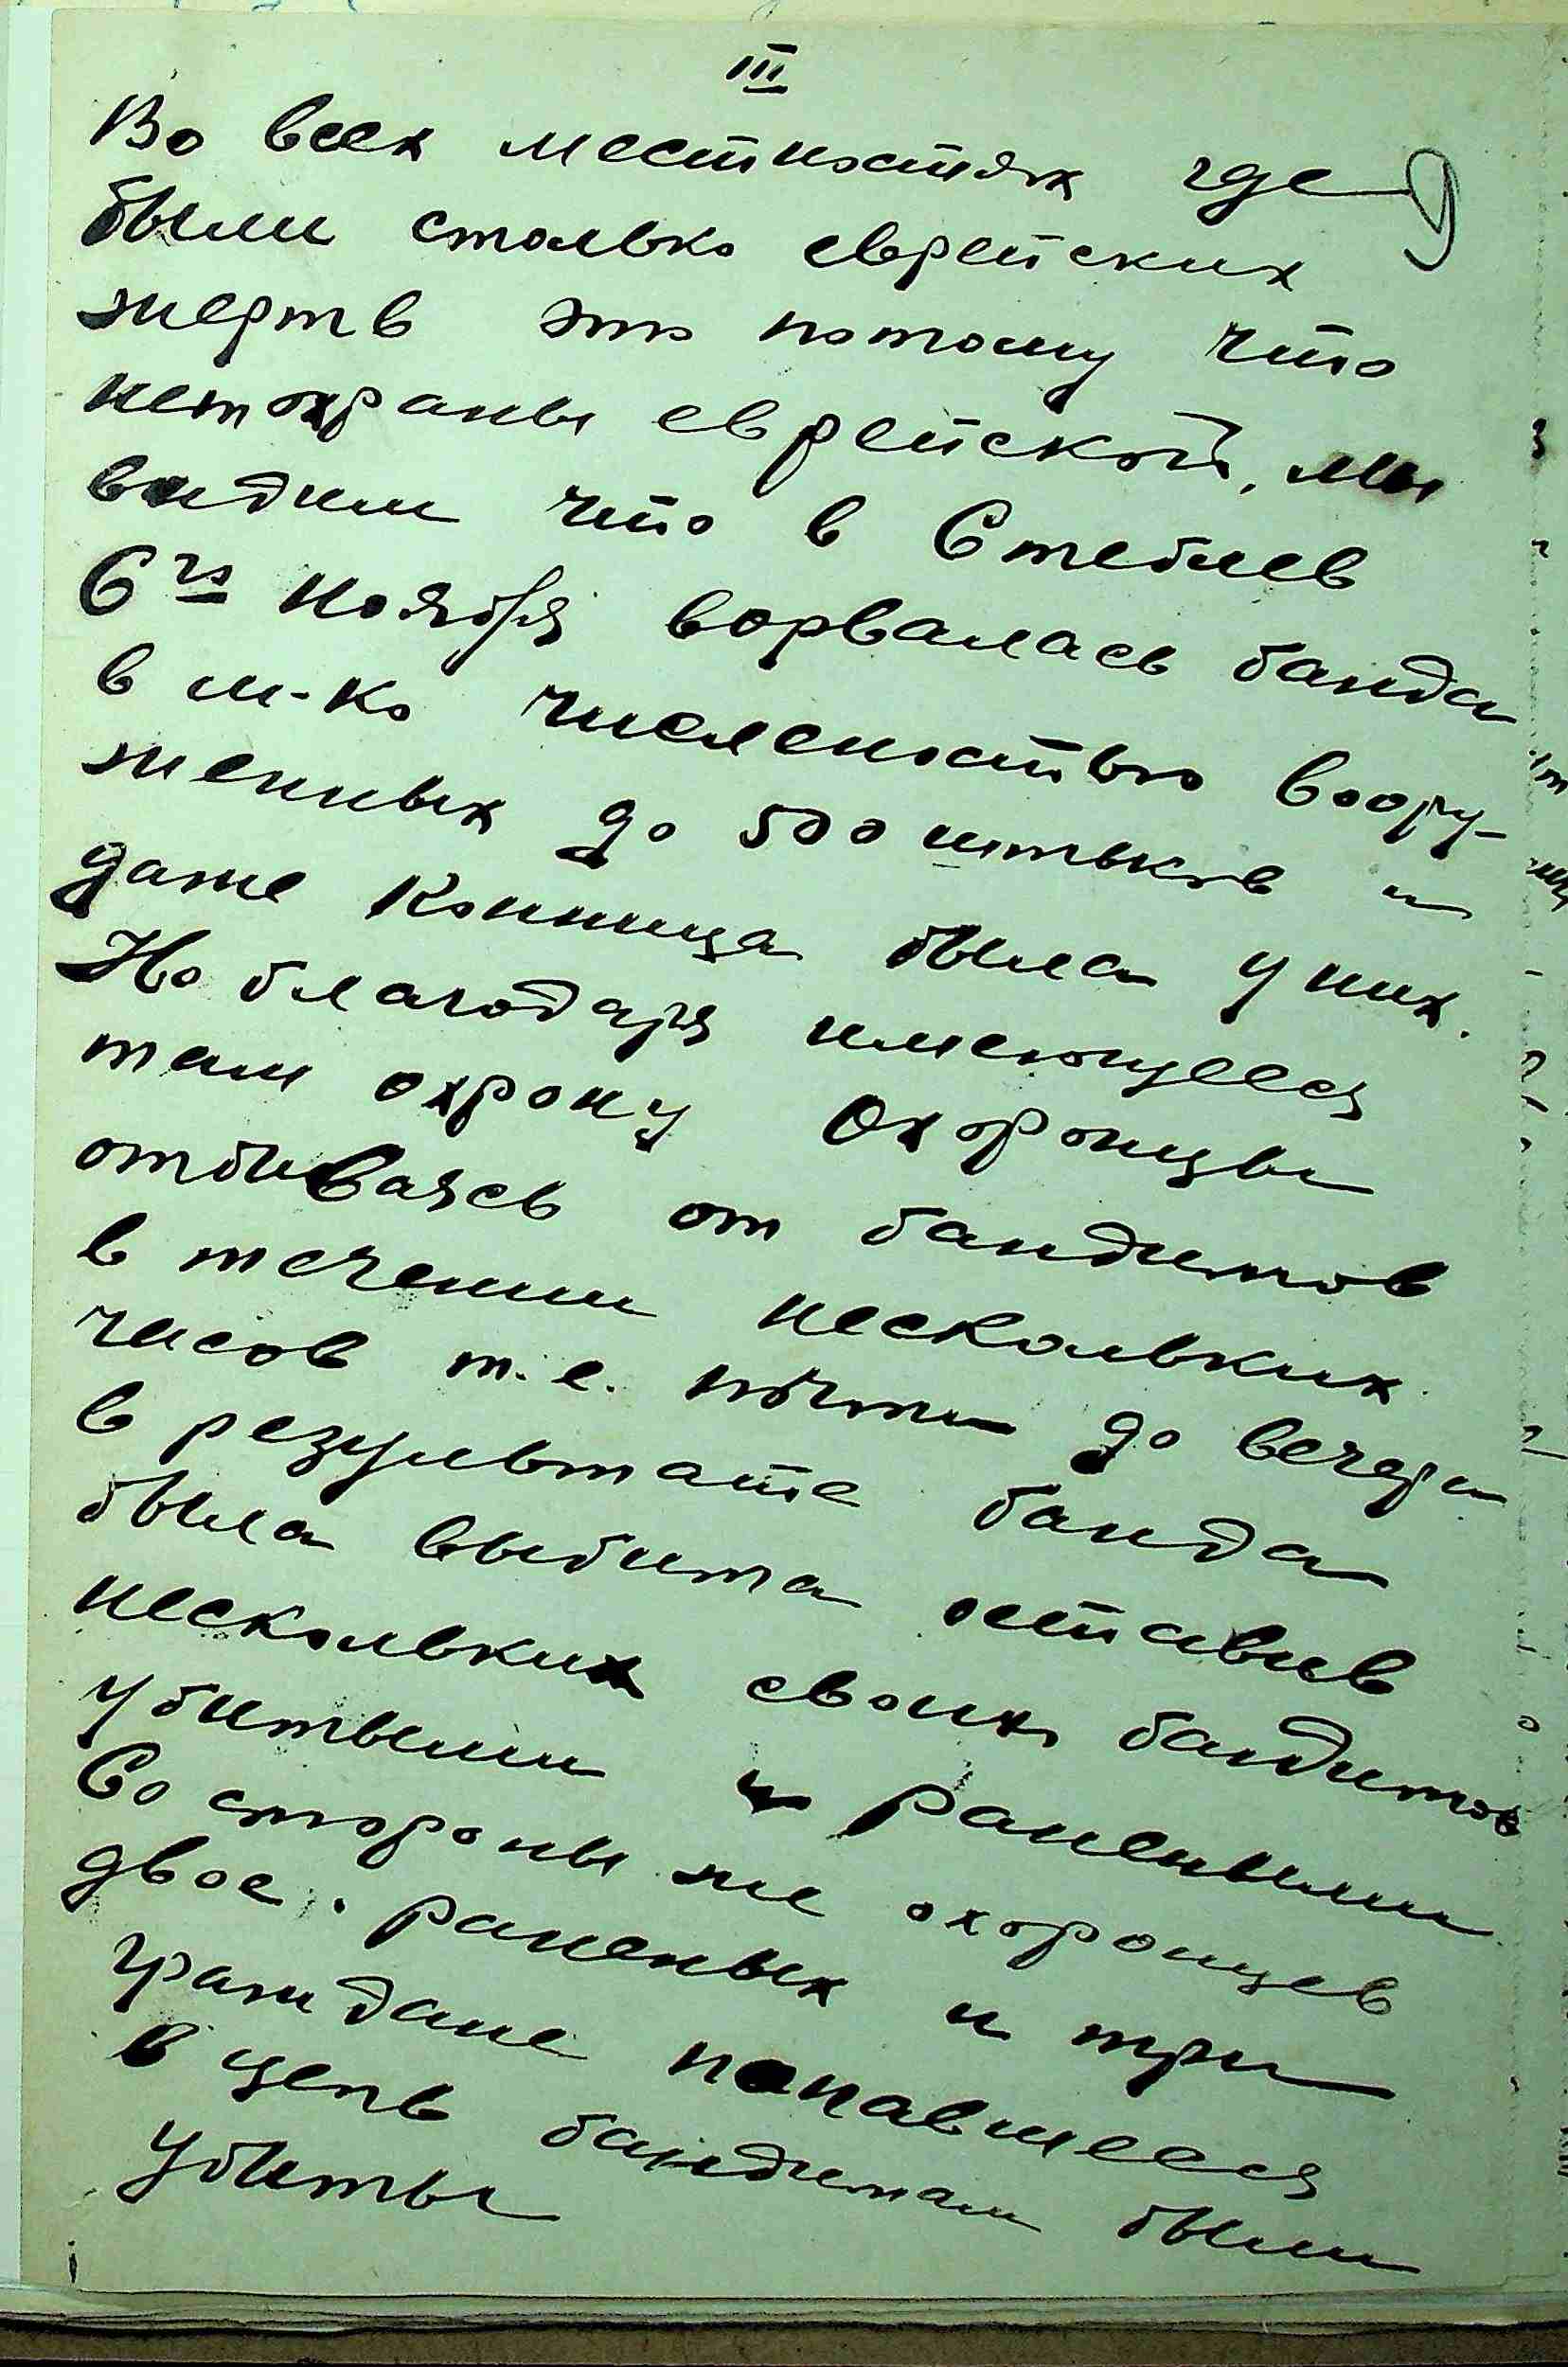 III
9
Во всех местностях где
были столько еврейских
жертв это потому что
нет охраны еврейской, мы
видим что в Стеблев
6го ноября ворвалась банда
в м-ко численостью воору-
женных до 500 штыков и
даже конница была у них.
Но благодаря имеющееся
там охрону Охоронцы
отбиваясь от бандитов
в течении нескольких
часов т.е. почти до вечера
в результате банда
была выбита оставив
нескольких своих бандитов
убитыми и раненными
Со стороны же охоронцев
двое раненых и три
граждане попавшееся
в цепь бандитам были
убиты